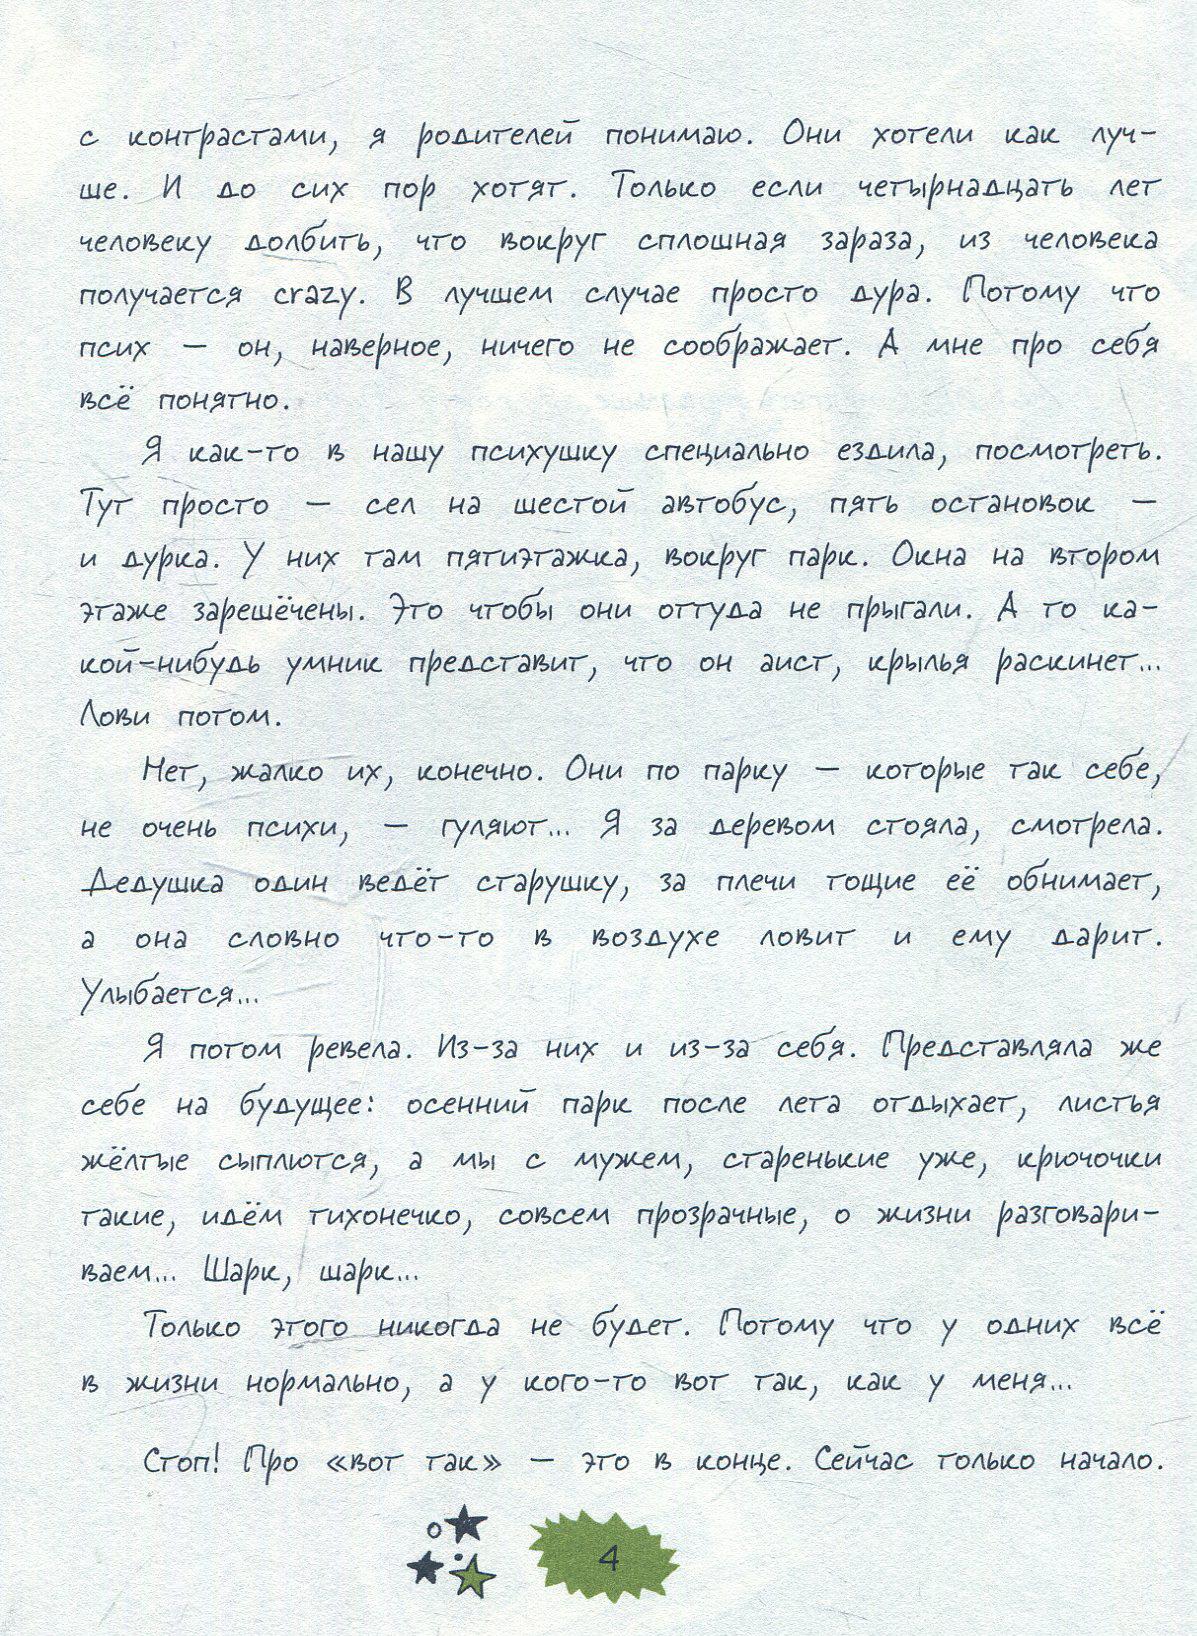 с контрастами, я родителей понимаю. Они хотели как луч-
ше. И до сих пор хотят. Только если четырнадцать лет
человеку долбить, что вокруг сплошная зараза, из человека
получается crazy. В лучшем случае просто дура. Потому что
псих — он, наверное, ничего не соображает. А мне про себя
всё понятно.
Я как-то в нашу психушку специально ездила, посмотреть.
Тут просто — сел на шестой автобус, пять остановок —
и дурка. У них там пятиэтажка, вокруг парк. Окна на втором
этаже зарешёчены. Это чтобы они оттуда не прыгали. А то ка-
кой-нибудь умник представит, что он аист, крылья раскинет...
Лови потом.
Нет, жалко их, конечно. Они по парку — которые так себе,
не очень психи, — гуляют... Я за деревом стояла, смотрела.
Дедушка один ведёт старушку, за плечи тощие её обнимает,
а она словно что-то в воздухе ловит и ему дарит.
Улыбается...
Я потом ревела. Из-за них и из-за себя. Представляла же
себе на будущее: осенний парк после лета отдыхает, листья
жёлтые сыплются, а мы с мужем, старенькие уже, крючочки
такие, идём тихонечко, совсем прозрачные, о жизни разговари-
ваем... Шарк, шарк...
Только этого никогда не будет. Потому что у одних всё
в жизни нормально, а у кого-то вот так, как у меня...
Стоп! Про «вот так» — это в конце. Сейчас только начало.
4